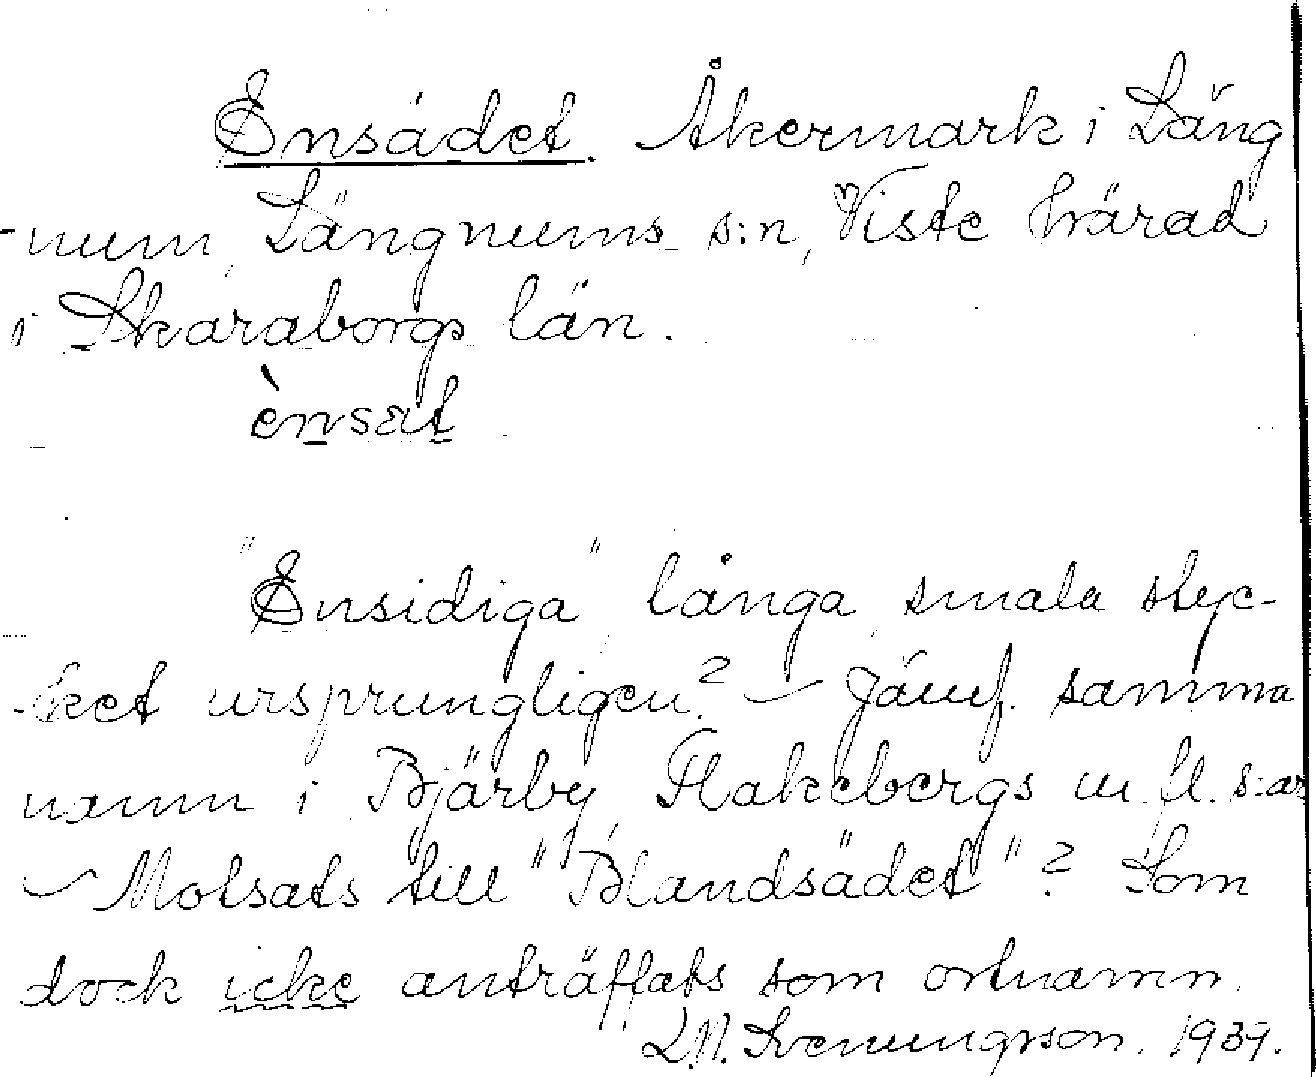 Ensädet. Åkermark i Läng
-num, Längnums s:n, Viste härad
i Skaraborgs län.
ènsæt
"Ensidiga" långa, smala styc-
-ket ursprungligen? – Jämf. samma
namn i Bjärby, Flakebergs m.fl. s:ar
– Motsats till "Blandsädet"? Som
dock icke anträffats som ortnamn.
L.M. Svenungsson. 1939.